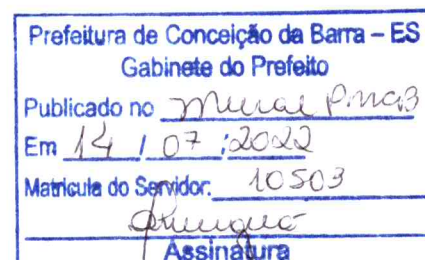 Prefeitura de Conceição da Barra – ES
Gabinete do Prefeito
Publicado no Mural PMCB
Em 14 / 07 / 2022
Matrícula do Servidor: 10503
Assinatura